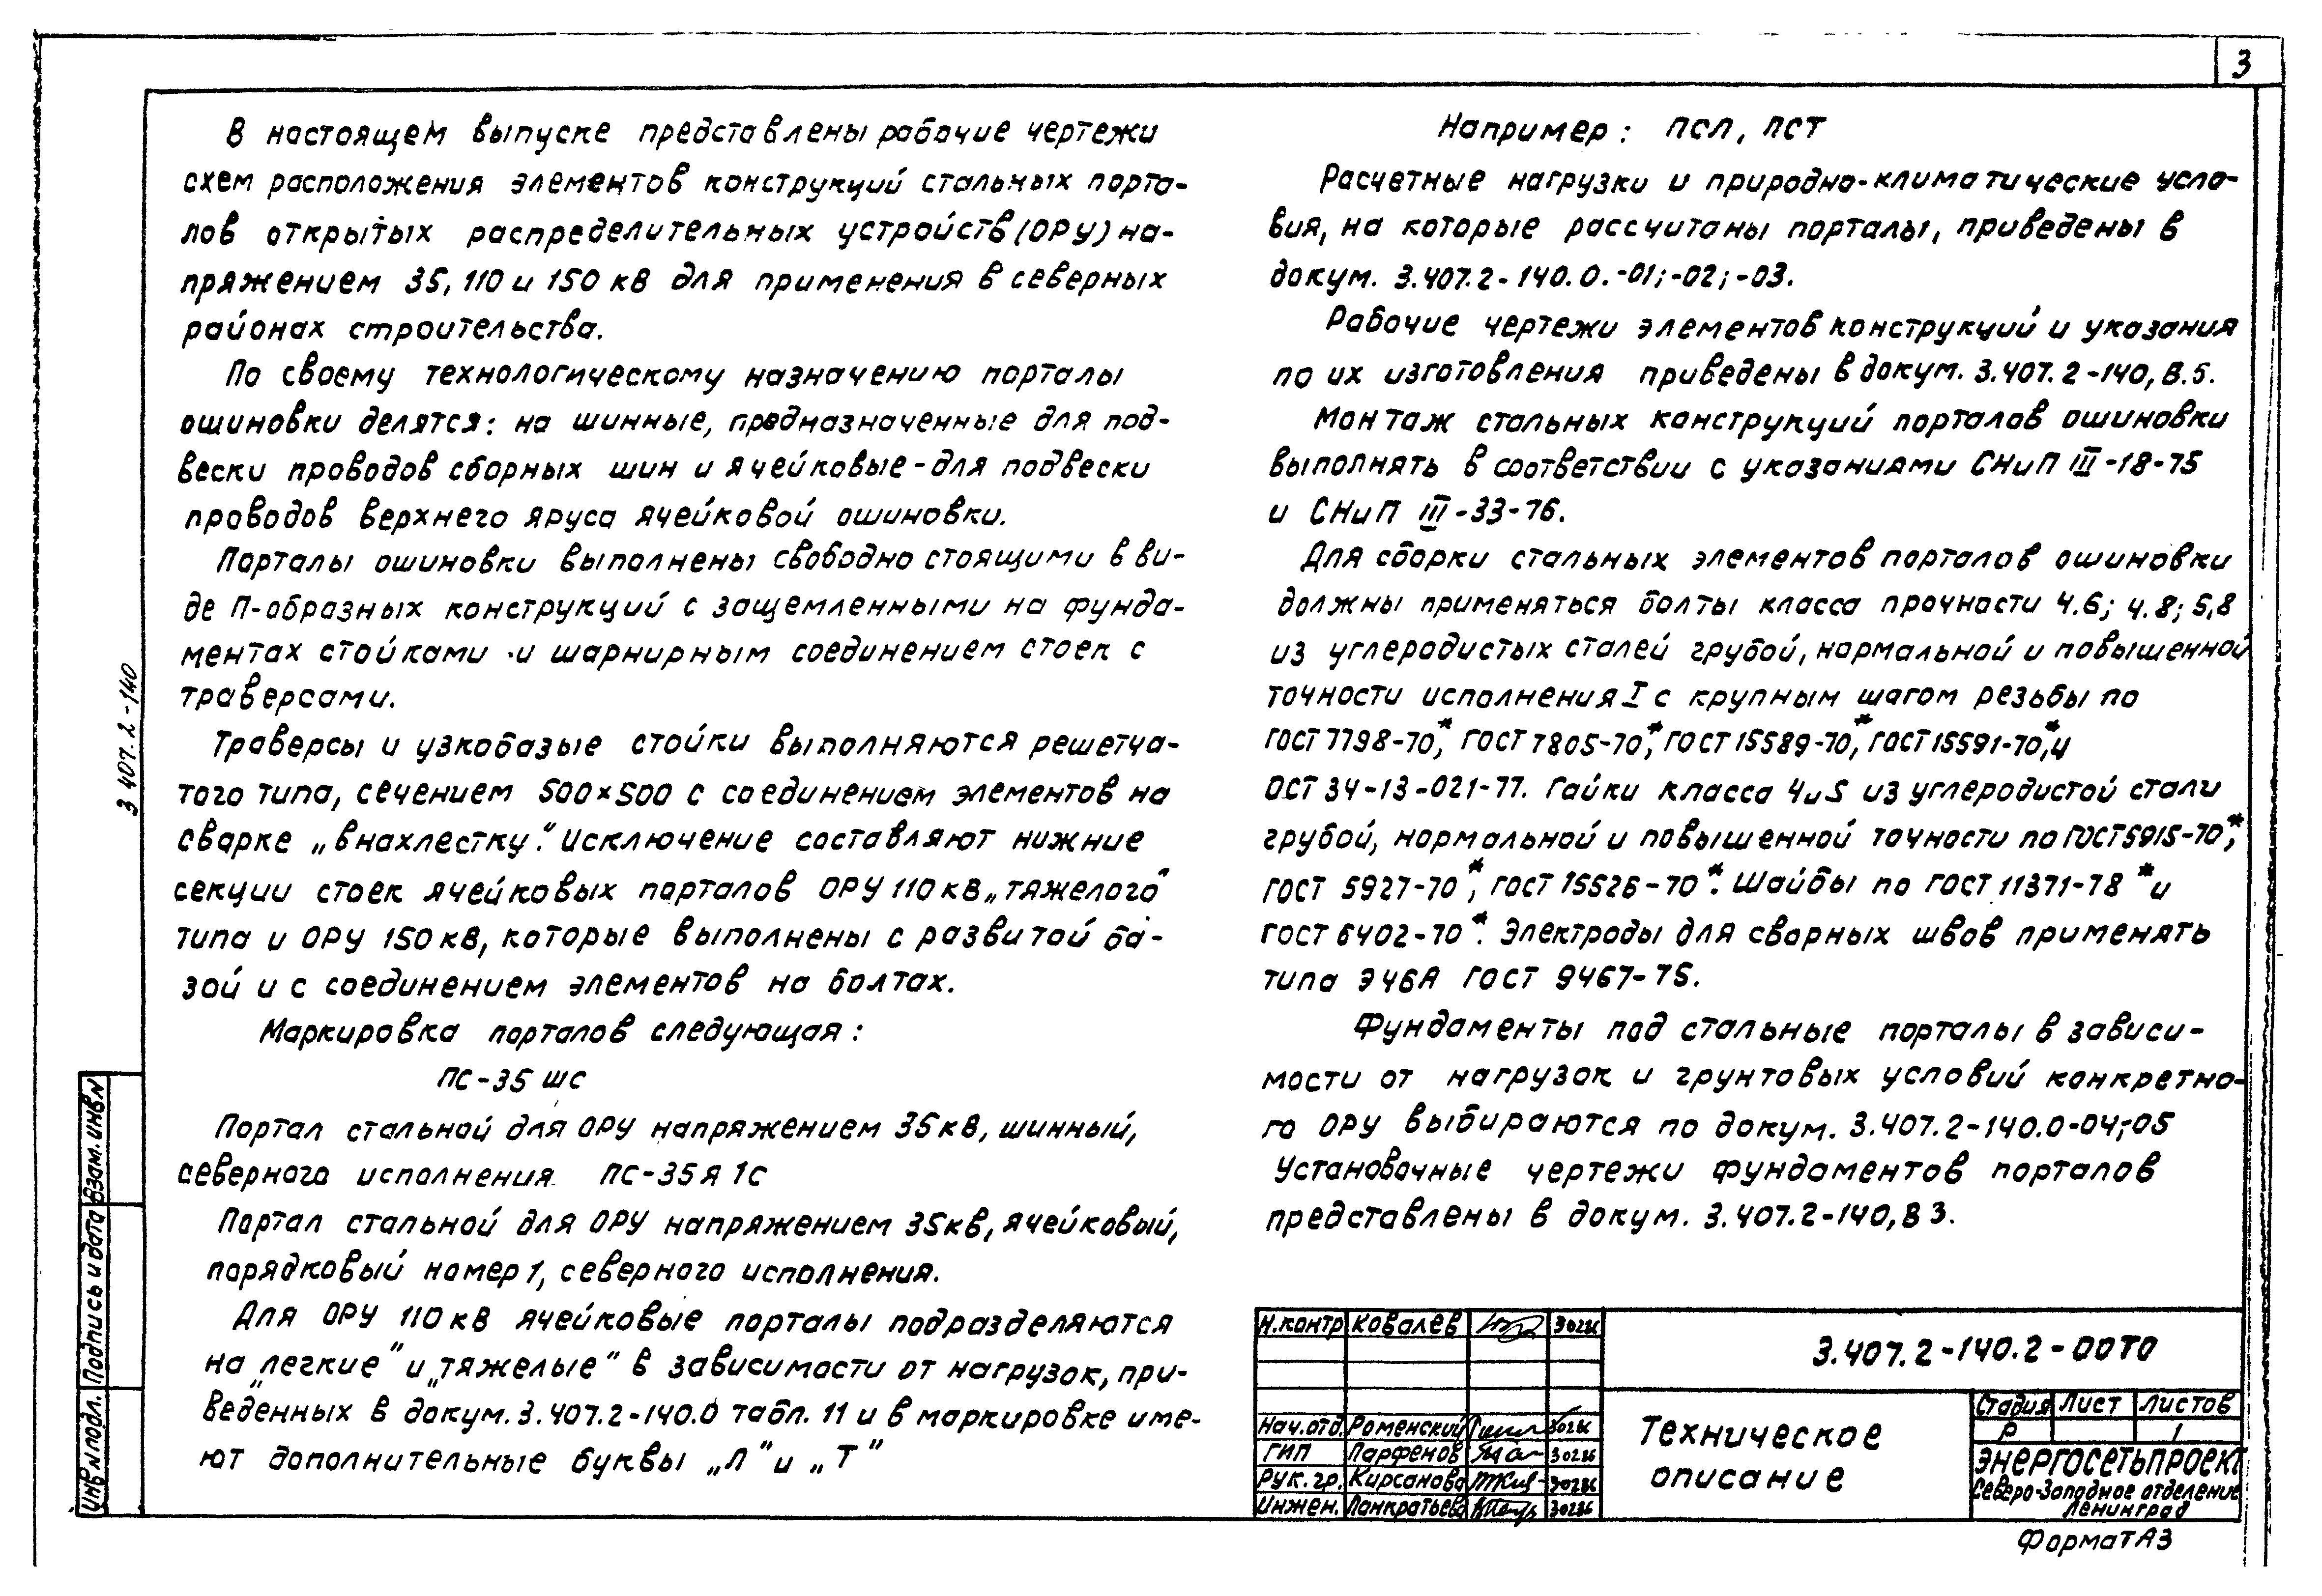 3
В настоящем выпуске представлены рабочие чертежи
схем расположения элементов конструкций стальных порта-
лов открытых распределительных устройств (ОРУ) на-
пряжением 35, 110 и 150 кВ для применения в северных
районах строительства.
По своему технологическому назначению порталы
ошиновки делятся: на шинные, предназначенные для под-
вески проводов сборных шин и ячейковые - для подвески
проводов верхнего яруса ячейковой ошиновки.
Порталы ошиновки выполнены свободно стоящими в ви-
де П-образных конструкций с защемленными на фунда-
ментах стойками и шарнирным соединением стоек с
траверсами.
Траверсы и узкобазые стойки выполняются решетча-
того типа, сечением 500×500 с соединением элементов на
сварке „внахлестку". Исключение составляют нижние
секции стоек ячейковых порталов ОРУ 110 кВ „тяжелого"
типа и ОРУ 150 кВ, которые выполнены с развитой ба-
зой и с соединением элементов на болтах.
Маркировка порталов следующая:
ПС-35 ШС
Портал стальной для ОРУ напряжением 35 кВ, шинный,
северного исполнения. ПС-35Я 1С
Портал стальной для ОРУ напряжением 35 кВ, ячейковый,
порядковый номер 1, северного исполнения.
Для ОРУ 110 кВ ячейковые порталы подразделяются
на „легкие" и „тяжелые" в зависимости от нагрузок, при-
веденных в докум. 3.407.2-140.0 табл. 11 и в маркировке име-
ют дополнительные буквы „Л" и „Т"
Например: ПСЛ, ПСТ
Расчетные нагрузки и природно-климатические усло-
вия, на которые рассчитаны порталы, приведены в
докум. 3.407.2-140.0.-01;-02;-03.
Рабочие чертежи элементов конструкций и указания
по их изготовления приведены в докум. 3.407.2-140, В.5.
Монтаж стальных конструкций порталов ошиновки
выполнять в соответствии с указаниями СНиП III-18-75
и СНиП III-33-76.
Для сборки стальных элементов порталов ошиновки
должны применяться болты класса прочности 4.6; 4.8; 5,8
из углеродистых сталей грубой, нормальной и повышенной
точности исполнения I с крупным шагом резьбы по
ГОСТ 7798-70*, ГОСТ 7805-70*, ГОСТ 15589-70*, ГОСТ 15591-70*, и
ОСТ 34-13-021-77. Гайки класса 4 и 5 из углеродистой стали
грубой, нормальной и повышенной точности по ГОСТ 5915-70*,
ГОСТ 5927-70*, ГОСТ 15526-70*. Шайбы по ГОСТ 11371-78* и
ГОСТ 6402-70*. Электроды для сварных швов применять
типа Э46А ГОСТ 9467-75.
Фундаменты под стальные порталы в зависи-
мости от нагрузок и грунтовых условий конкретно-
го ОРУ выбираются по докум. 3.407.2-140.0-04;-05
Установочные чертежи фундаментов порталов
представлены в докум. 3.407.2-140, В 3.
3 407.2-140
Инв N подл. Подпись и дата Взам. инв. N
Н.контр Ковалев 30286
Нач.отд. Роменский 30286
ГИП Парфенов 30286
Рук. гр. Кирсанова 30286
Инжен. Панкратьева 30286
3.407.2-140.2-00ТО
Техническое
описание
Стадия Лист Листов
Р 1
ЭНЕРГОСЕТЬПРОЕКТ
Северо-Западное отделение
Ленинград
Формат А3